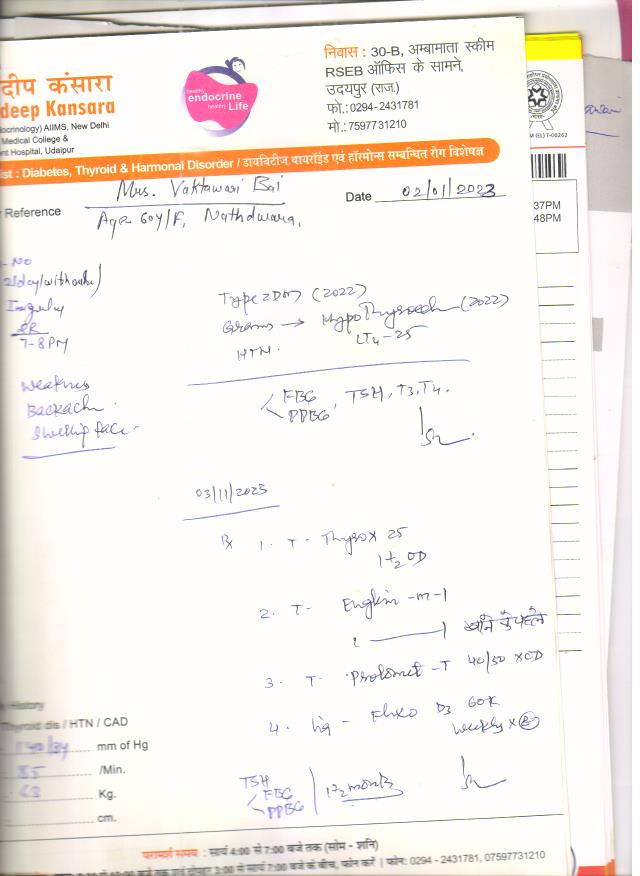 दीप कंसारा
deep Kansara
ocrinology) AIIMS, New Delhi
Medical College &
nt Hospital, Udaipur
healthy
endocrine
healthy Life
निवास : 30-B, अम्बामाता स्कीम
RSEB ऑफिस के सामने,
उदयपुर (राज.)
फो.:0294-2431781
मो.:7597731210
ist : Diabetes, Thyroid & Harmonal Disorder / डायबिटीज थायरॉइड एवं हॉरमोन्स सम्बन्धित रोग विशेषज्ञ
Reference Mrs. Vaktawari Bai Date 02/01/2023
Age 60Y/F, Nathdwara,
37PM
48PM
NO
7-8PM
Weakness
Backach
Swelling face
Type 2DM (2022)
HypoThyroid (2022)
LT4-25
HTN.
FBG
PPBG, TSH, T3, T4.
03/11/2023
Rx 1. T. Thyrox 25
OD
2. T- -m-1
1 ——— 1 खाने के पहले
3. T. Prolomet-T 40/50 x OD
4. D3 60K
weekly x 8
History
Thyroid dis / HTN / CAD
mm of Hg
85 /Min.
63 Kg.
cm.
TSH
FBG
PPBG
परामर्श समय : सायं 4:00 से 7:00 बजे तक (सोम - शनि)
से 7:00 बजे के बीच, फोन करें | फोन: 0294 - 2431781, 07597731210